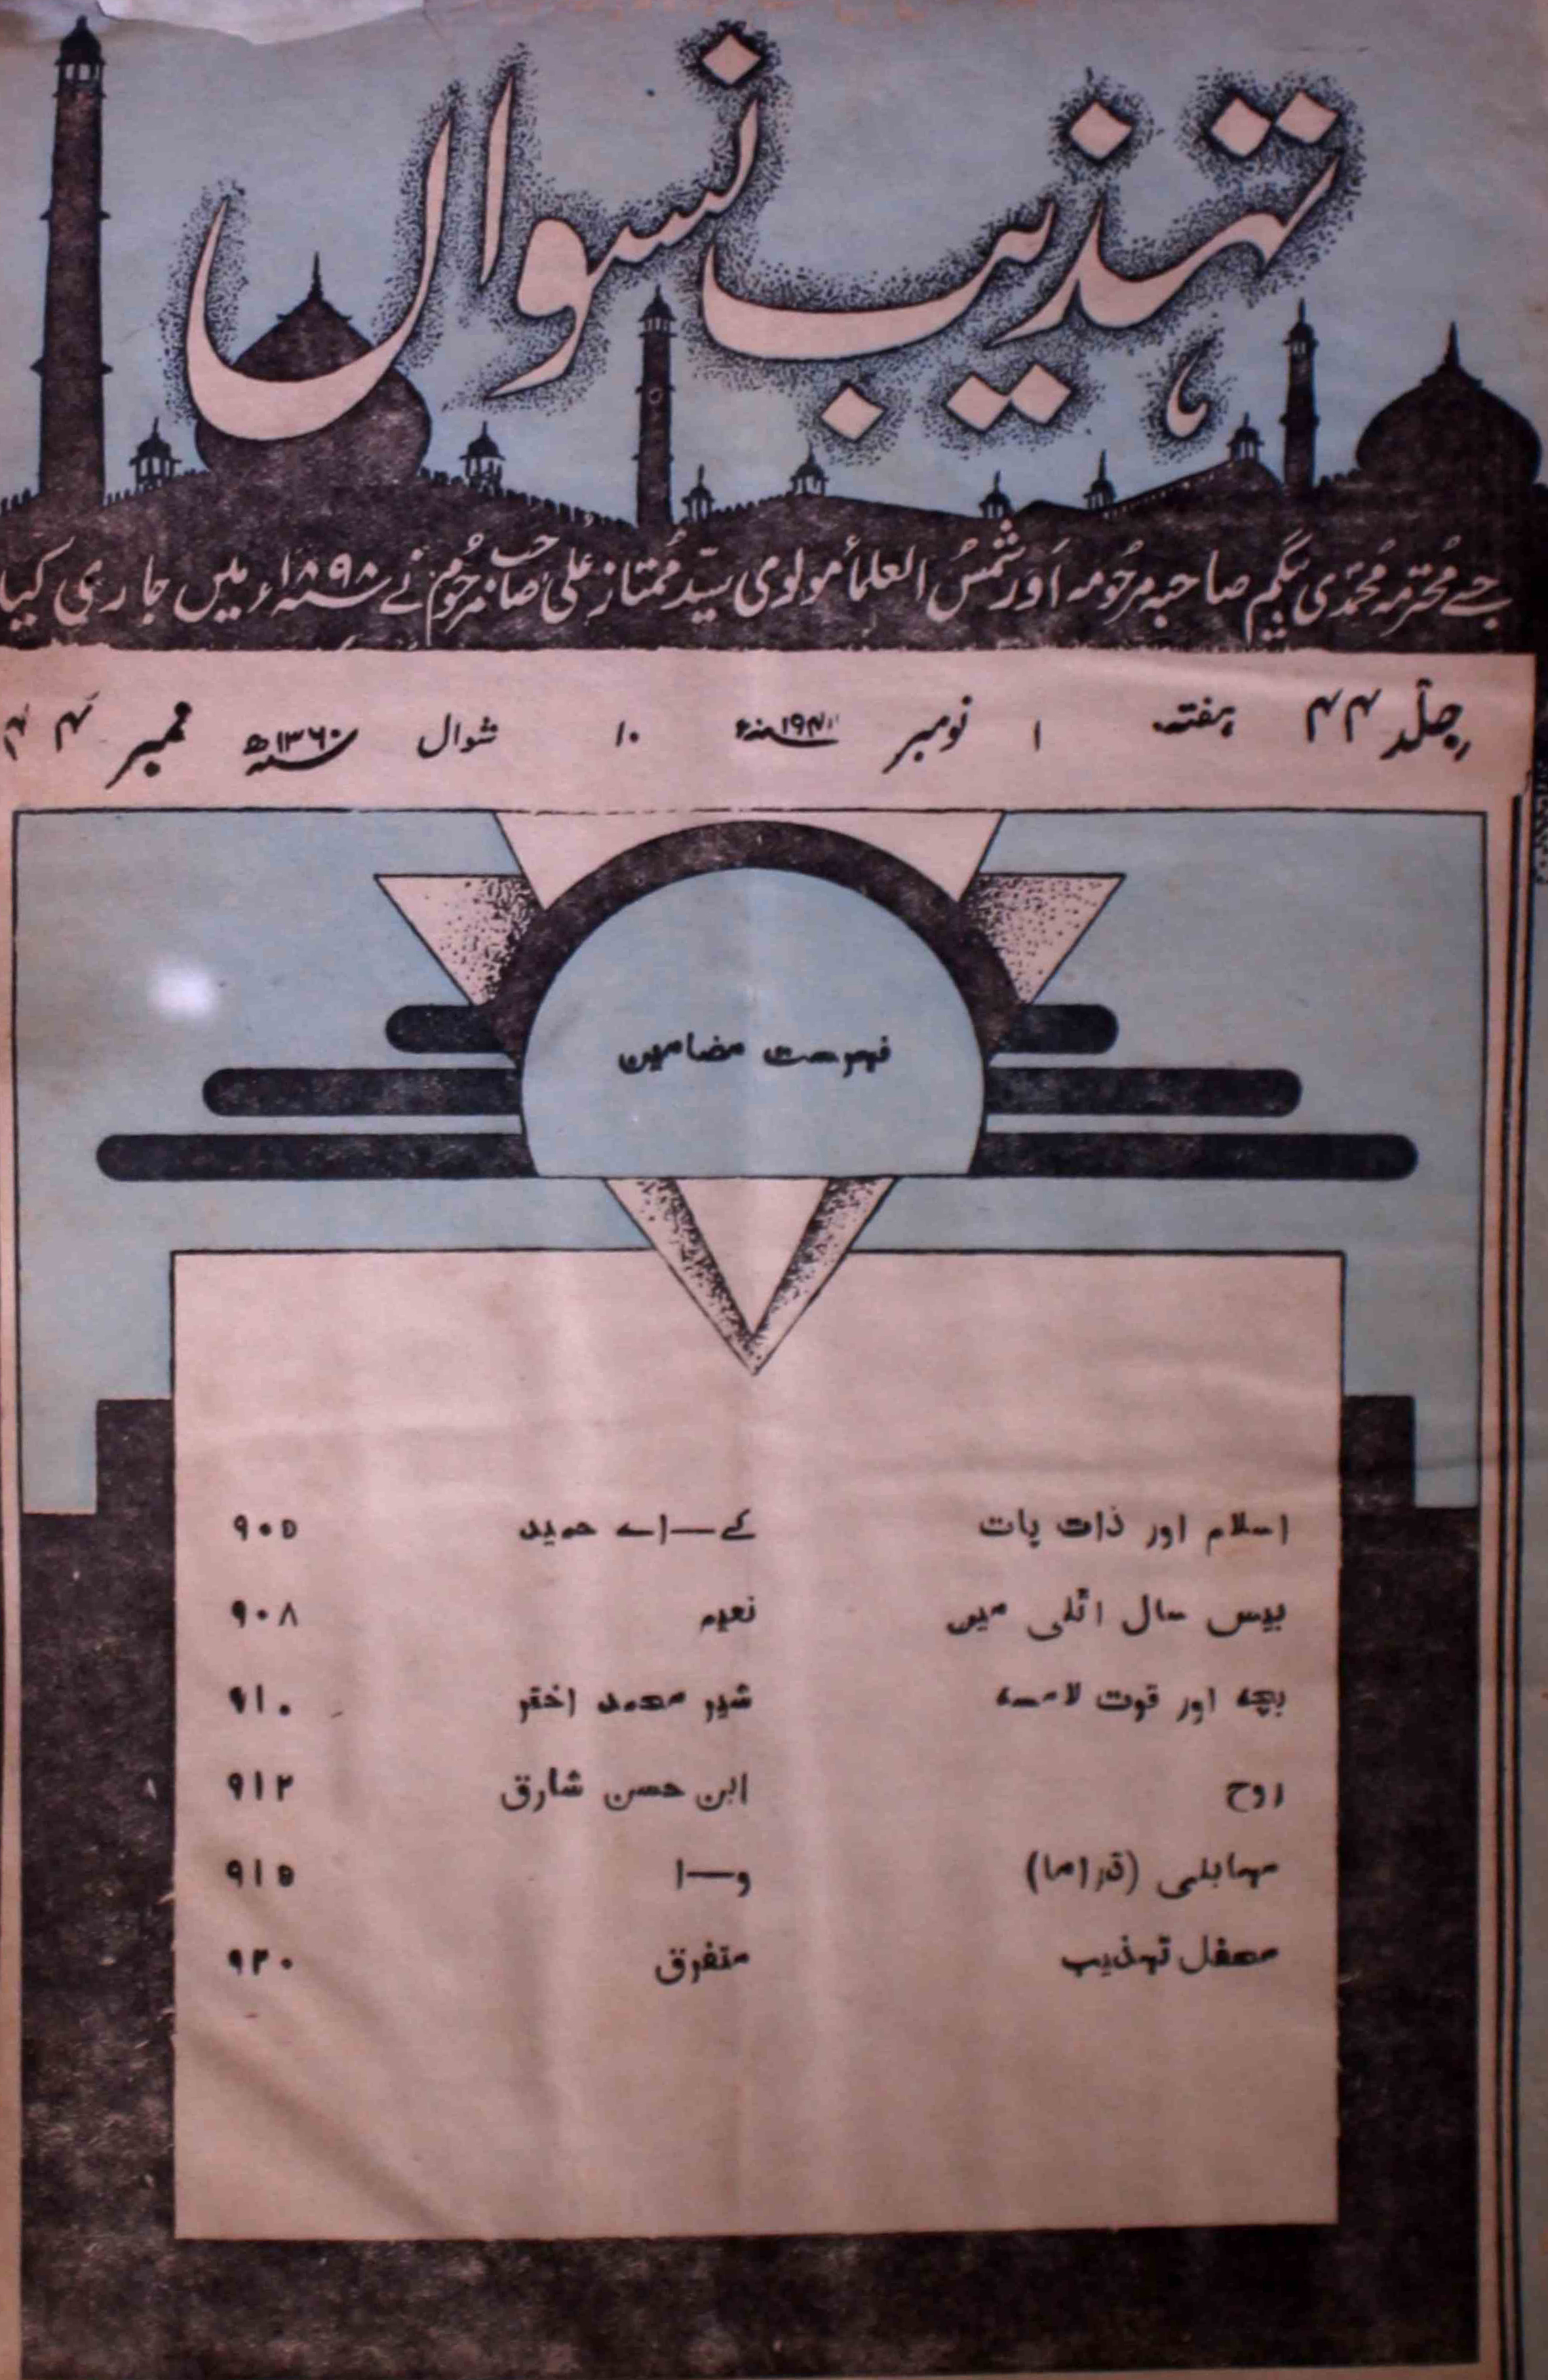 تہذیب نسواں
جسے محترمہ محمدی بیگم صاحبہ مرحومہ اور شمس العلماء مولوی سید ممتاز علی صاحب مرحوم نے سنہ ۱۸۹۸ء میں جاری کیا
جلد ۴۴ ہفتہ ۱ نومبر سنہ ۱۹۴۱ء ۱۰ شوال سنہ ۱۳۶۰ھ نمبر ۴۴
فہرست مضامین
اسلام اور ذات پات کے—اے حمید ۹۰۵
بیس سال اٹلی میں نعیم ۹۰۸
بچے اور قوت لامسہ شیر محمد اختر ۹۱۰
روح ابن حسن شارق ۹۱۲
مہابلی (ڈراما) و—ا ۹۱۵
محفل تہذیب متفرق ۹۲۰